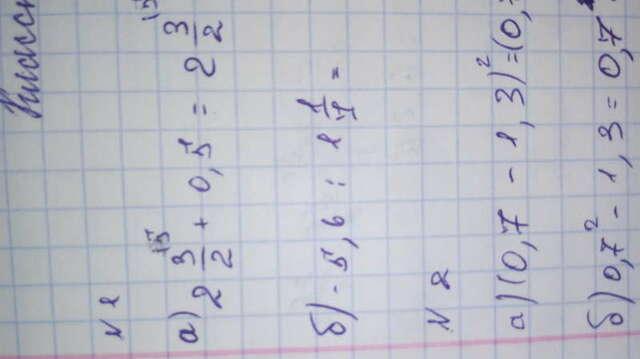 Класс
№ 1
а) 2 3/2 + 0,5 = 2 3/2
б) - 5,6 : 1 1/7 =
№ 2
а) (0,7 - 1,3)² = (0,
б) 0,7² - 1,3 = 0,7